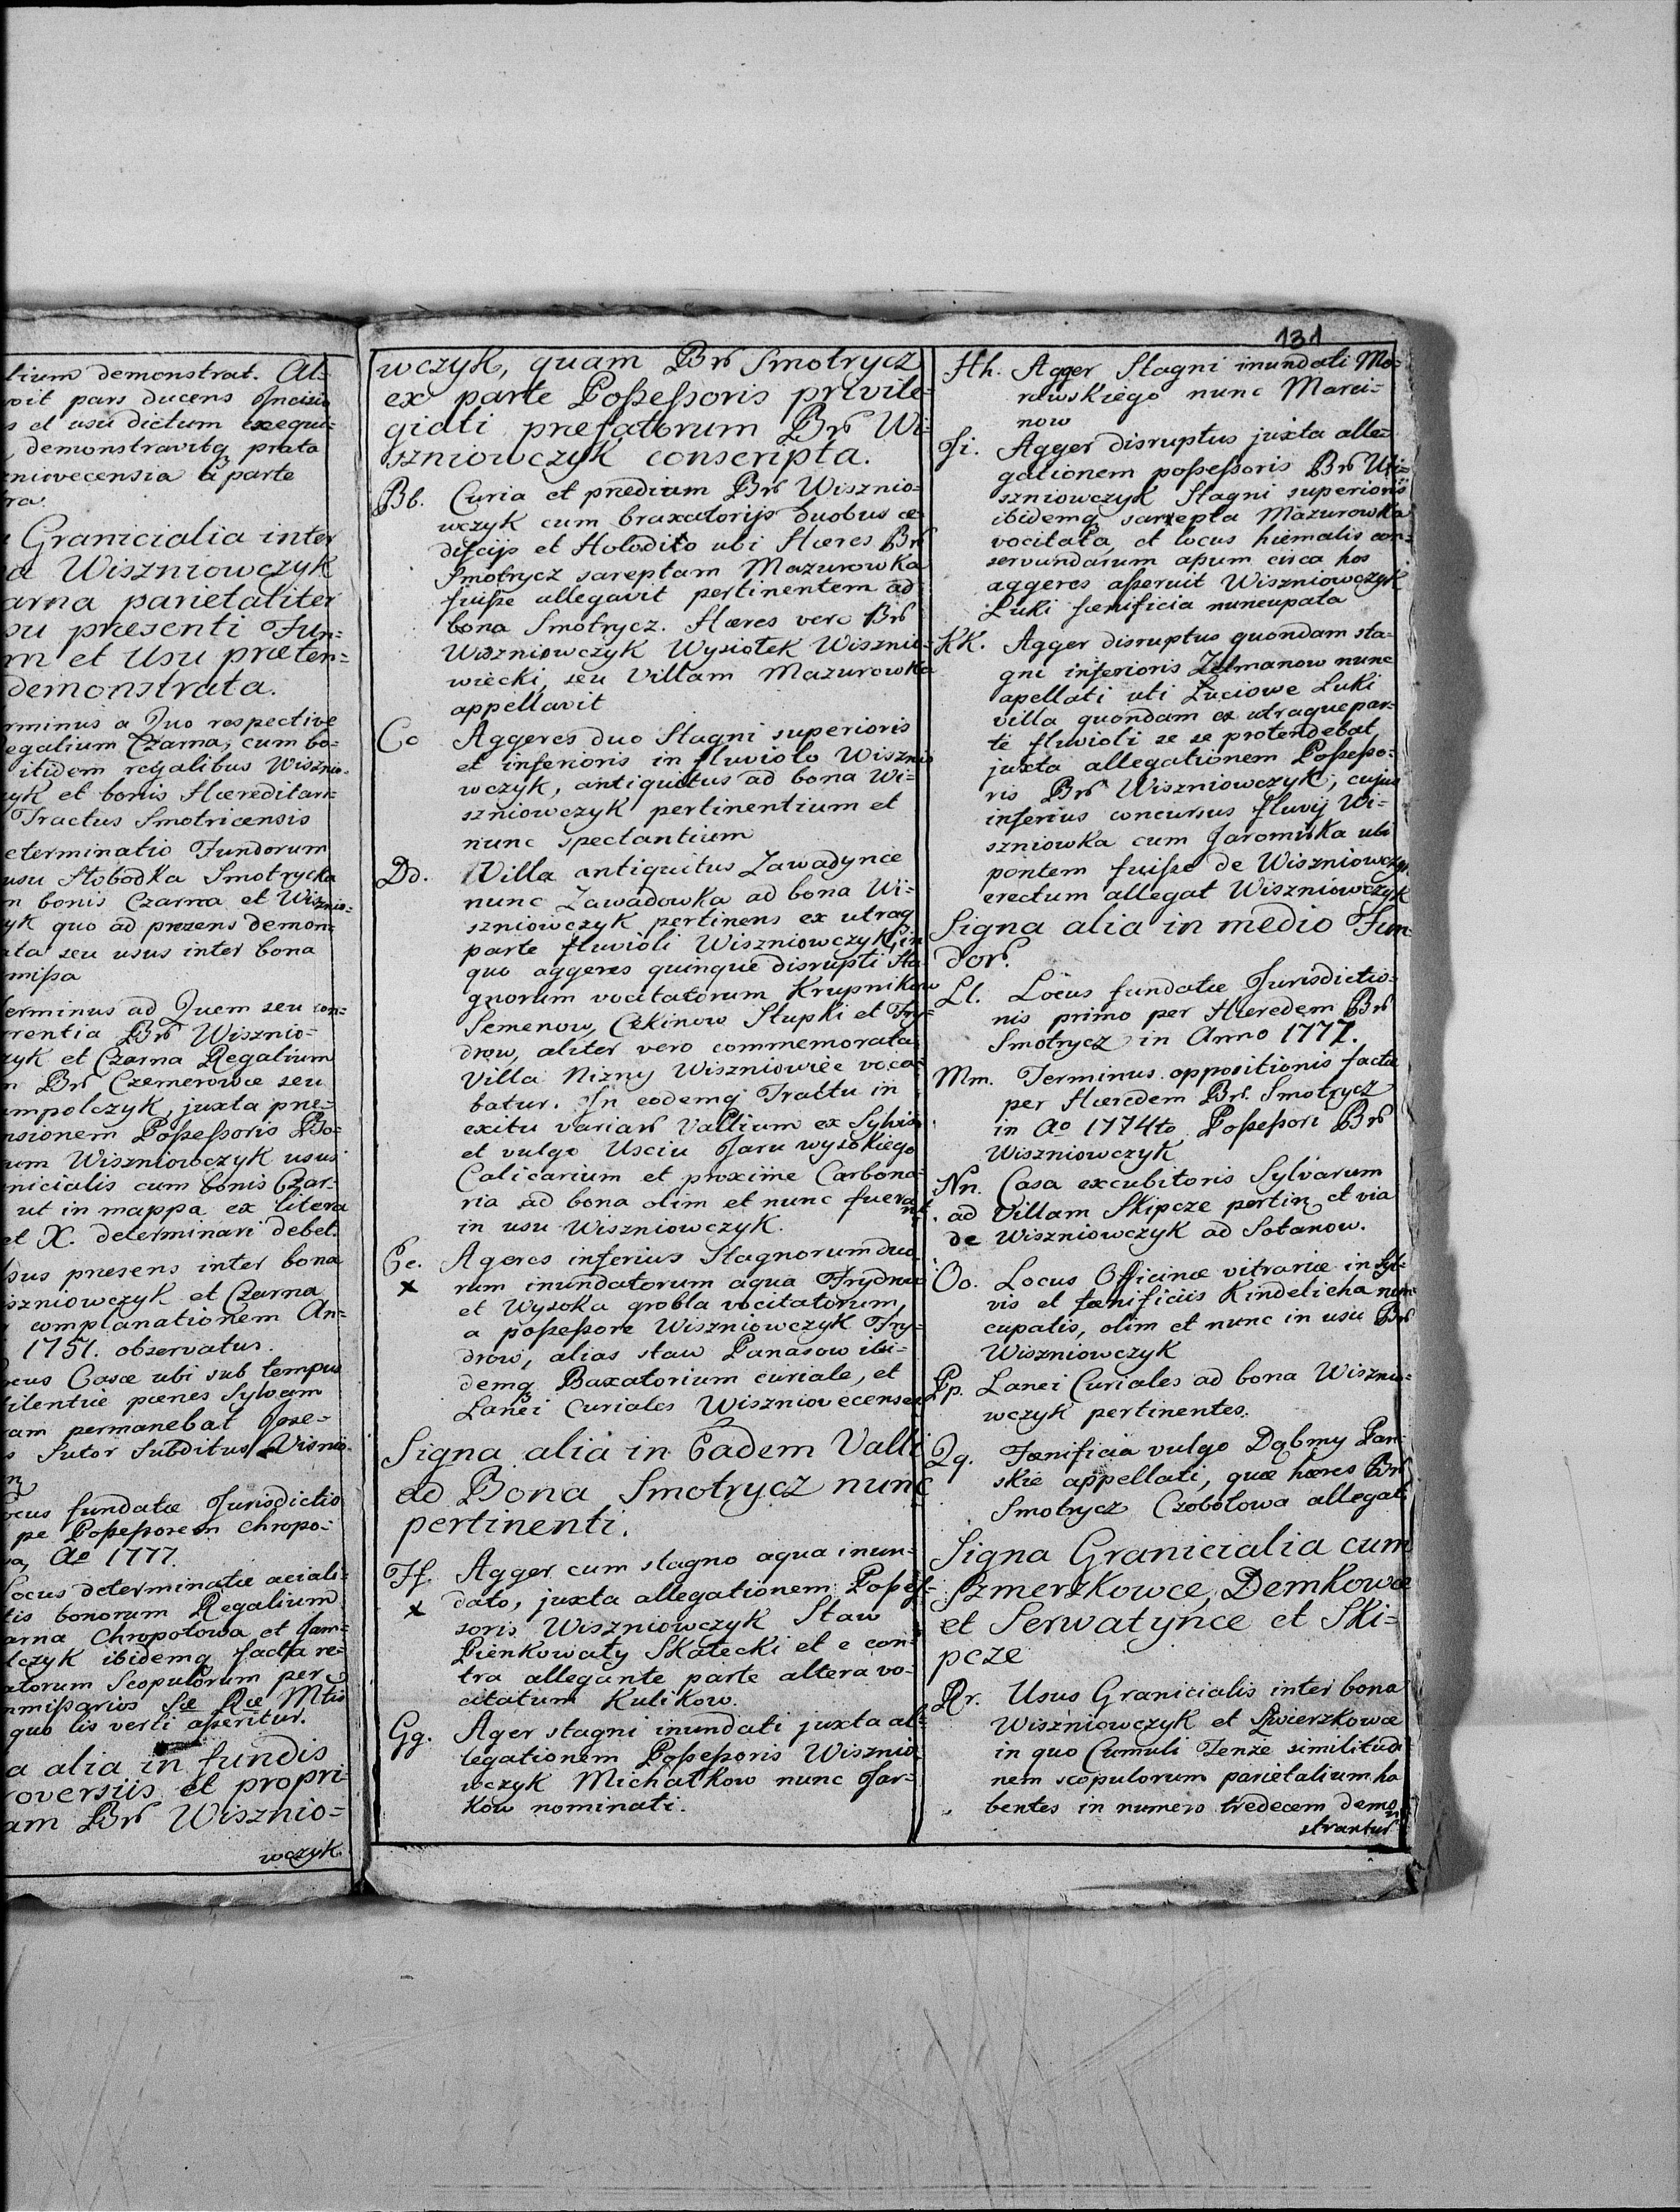 tium demonstrat. At-
voit pars ducens
s et usu dictum exequi-
demonstravitq prata
zniovecensia a parte
ra.
Granicialia inter
a Wiszniowczyk
arna parietaliter
su præsenti Fun-
m et Usu præten-
demonstrata.
rminus a Quo respective
egalium Czarna, cum bo-
itidem regalibus Wisznio-
yk et bonis Hæreditari-
Tractus Smotricensis
eterminatio Fundorum
usu Słobodka Smotrycka
n bonis Czarna et Wisznio-
yk quo ad præsens demon-
ata seu usus inter bona
missa
erminus ad Quem seu con-
rrentia Bñr Wisznio-
zyk et Czarna Regalium
n Bñr Czemerowce seu
mpolczyk, juxta præ-
nsionem Possessoris Bo-
um Wiszniowczyk usus
nicialis cum bonis Czar-
ut in mappa ex litera
et X. determinari debet.
sus præsens inter bona
szniowczyk et Czarna
complanationem An-
1751. observatur.
ocus Casæ ubi sub tempus
ilentiæ pænes Sylvam
am permanebat
s Sutor Subditus Wisnio-
n
ocus fundatæ Jurisdictio
pe Possessorem Chropo-
a, Ao 1777.
Locus determinatæ aciali-
tis bonorum Regalium
arna Chropotowa et Jam-
lczyk ibidemq facta re-
atorum Scopulorum per
mmissarios Sæ Ræ Mtis
quo lis verti asseritur.
a alia in fundis
roversiis et propri-
am Bñr Wisznio-
wczyk
131
wczyk, quam Bñr Smotrycz
ex parte Possessoris privile-
giati præfatorum Bñr Wi-
szniowczyk conscripta.
Bb. Curia et prædium Bñr Wisznio-
wczyk cum braxatorijs duobus æ-
dificijs et Holodito ubi Hæres Bñr
Smotrycz sareptam Mazurowka
fuisse allegavit pertinentem ad
bona Smotrycz. Hæres vero Bñr
Wiszniowczyk Wysiołek Wisznio-
wiecki, seu Villam Mazurowka
appellavit
Cc Aggeres duo Stagni superioris
et inferioris in fluviolo Wisznio
wczyk, antiquitus ad bona Wi-
szniowczyk pertinentium et
nunc spectantium
Dd. Villa antiquitus Zawadynce
nunc Zawadowka ad bona Wi-
szniowczyk pertinens ex utraq
parte fluvioli Wiszniowczyk, in
quo aggeres quinque disrupti sta-
gnorum vocitatorum Krupnikow
Semenow, Cekinow Słupki et Fry-
drow, aliter vero commemorata
Villa Nizny Wiszniowiec voca-
batur. In eodemq Tractu in
exitu variar Vallium ex Sylvis
et vulgo Usciu Jaru wysokiego
Calicarium et proxime Carbona-
ria ad bona olim et nunc fuerant
in usu Wiszniowczyk.
Ee. Ageres inferius Stagnorum duo-
x rum inundatorum aqua Frydrow
et Wysoka grobla vocitatorum,
a possessore Wiszniowczyk Fry-
drow, alias staw Panasow ibi-
demq Baxatorium curiale, et
Lanei Curiales Wiszniovecenses
Signa alia in Eadem Valli
ad Bona Smotrycz nunc
pertinenti.
Ff. Agger cum stagno aqua inun-
x dato, juxta allegationem Posses-
soris Wiszniowczyk Staw
Pienkowaty Skałecki et e con-
tra allegante parte altera vo-
citatum Kulikow.
Gg. Ager stagni inundati juxta al-
legationem Possessoris Wisznio-
wczyk Michałkow nunc Jar-
kow nominati.
Hh. Agger Stagni inundati Mo-
rawskiego nunc Marci-
now
Ji. Agger disruptus juxta alle-
gationem possessoris Bñr Wi-
szniowczyk Stagni superioris
ibidemq sarepta Mazurowka
vocitata, et locus hiemalis con-
servandarum apum circa hos
aggeres asseruit Wiszniowczyk
Łuki fœnificia nuncupata
KK. Agger disruptus quondam sta-
gni inferioris Zelmanow nunc
apellati uti Łuciowe Łuki
villa quondam ex utraque par-
te fluvioli se se protendebat
juxta allegationem Possesso-
ris Bñr Wiszniowczyk, cujus
inferius concursus fluvij Wi-
szniowka cum Jaromirka ubi
pontem fuisse de Wiszniowczyk
erectum allegat Wiszniowczyk
Signa alia in medio Fun-
dor.
Ll. Locus fundatæ Jurisdictio-
nis primo per Hæredem Bñr
Smotrycz in Anno 1777.
Mm. Terminus oppositionis factæ
per Hæredem Bñr Smotrycz
in Ao 1774to Possessori Bñr
Wiszniowczyk
Nn. Casa excubitoris Sylvarum
ad Villam Skipcze pertin et via
de Wiszniowczyk ad Sotanow.
Oo. Locus Officinæ vitrariæ in Syl-
vis et fœnificiis Kindelicha nun-
cupatis, olim et nunc in usu Bñr
Wiszniowczyk
Pp. Lanei Curiales ad bona Wisznio-
wczyk pertinentes.
Qq. Fœnificia vulgo Dąbmy Pań-
skie appellati, quæ hæres Bñr
Smotrycz Czobotowa allegat
Signa Granicialia cum
Szmerzkowce, Demkowce
et Serwatynce et Ski-
pcze
Rr. Usus Granicialis inter bona
Wiszniowczyk et Swierzkowce
in quo Cumuli Terræ similitudi
nem scopulorum parietalium ha
bentes in numero tredecem demon
strantur